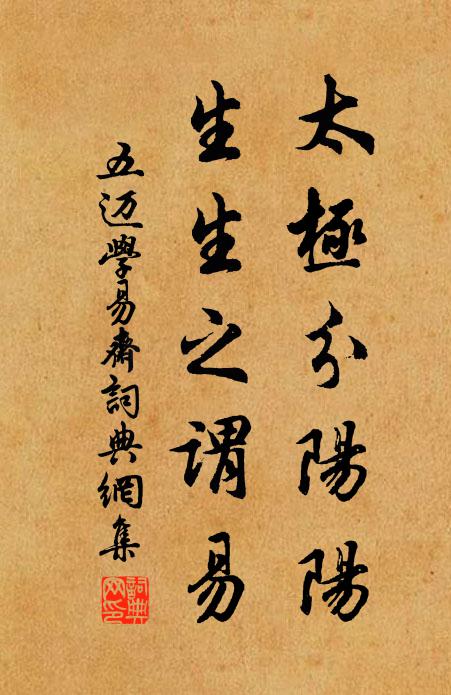 太極分陽陽
生生之謂易
五迈學易齋詞典網集
詞典
网印